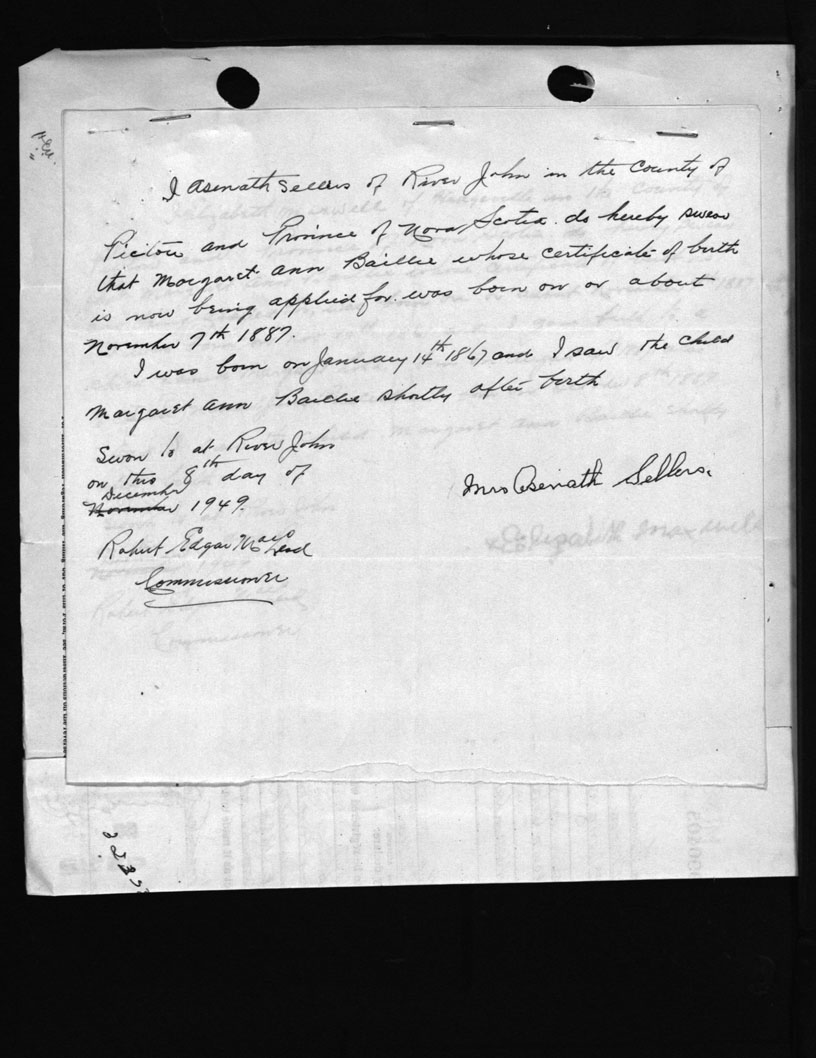 I Asenath Sellers of River John in the County of
Pictou and Province of Nova Scotia. do hereby swear
that Margaret Ann Baillie whose certificate of birth
is now being applied for. was born on or about
November 7th 1887.
I was born on January 14th 1867 and I saw the child
Margaret Ann Baillie shortly after birth
Swon to at River John
on this 8th day of
December
November 1949.
Mrs Asenath Sellers.
Robert Edgar MacLeod
Commissioner